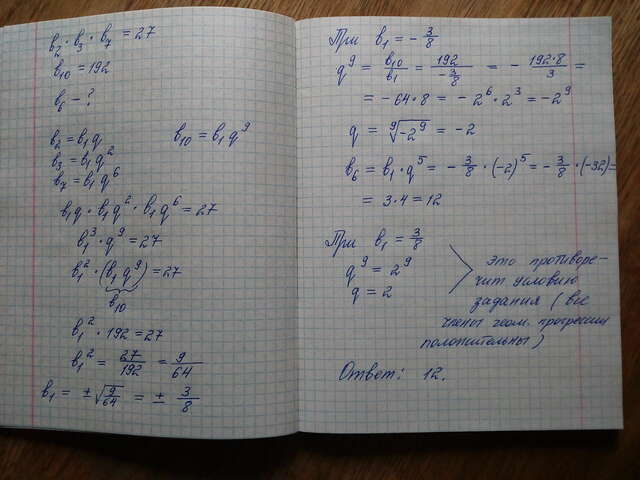 b₂ · b₃ · b₇ = 27
b₁₀ = 192
b₆ - ?
b₂ = b₁q
b₁₀ = b₁q⁹
b₃ = b₁q²
b₇ = b₁q⁶
b₁q · b₁q² · b₁q⁶ = 27
b₁³ · q⁹ = 27
b₁² · (b₁q⁹) = 27
b₁₀
b₁² · 192 = 27
b₁² = 27/192 = 9/64
b₁ = ± √(9/64) = ± 3/8
При b₁ = - 3/8
q⁹ = b₁₀/b₁ = 192/(-3/8) = - 192·8/3 =
= - 64 · 8 = - 2⁶ · 2³ = -2⁹
q = ⁹√(-2⁹) = -2
b₆ = b₁ · q⁵ = - 3/8 · (-2)⁵ = - 3/8 · (-32) =
= 3 · 4 = 12
При b₁ = 3/8
q⁹ = 2⁹
q = 2
это противоре-
чит условию
задания (все
члены геом. прогрессии
положительны)
Ответ: 12.